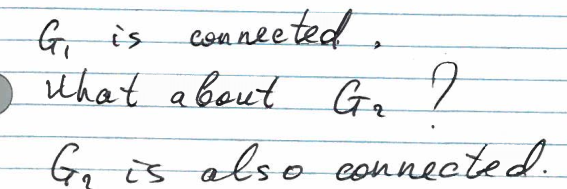 G₁ is connected.
What about G₂ ?
G₂ is also connected.